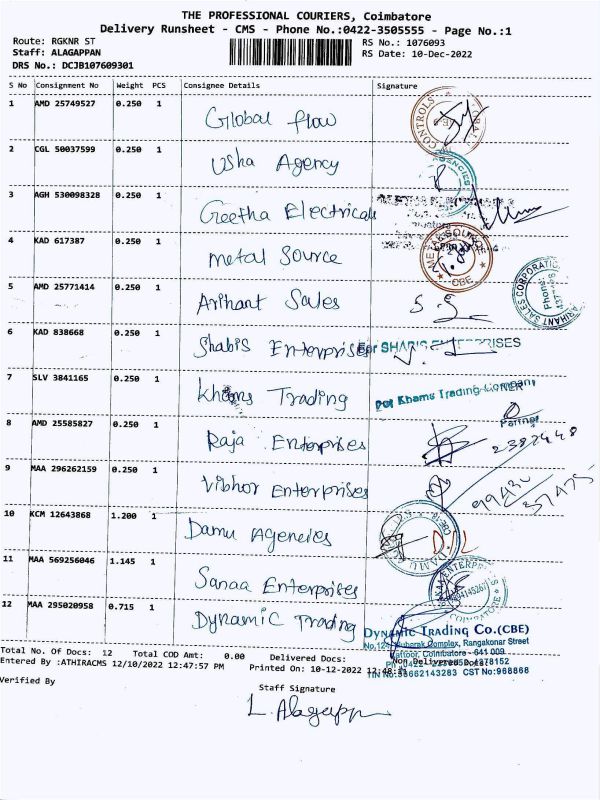 THE PROFESSIONAL COURIERS, Coimbatore
Delivery Runsheet - CMS - Phone No.:0422-3505555 - Page No.:1
Route: RGKNR ST
RS No.: 1076093
Staff: ALAGAPPAN
RS Date: 10-Dec-2022
DRS No.: DCJB107609301
S No Consignment No Weight PCS Consignee Details Signature
1 AMD 25749527 0.250 1 Global flow
CONTROLS
2 CGL 50037599 0.250 1 Usha Agency
AGENCIES
3 AGH 530098328 0.250 1 Geetha Electricals
4 KAD 617387 0.250 1 Metal Source
METAL SOURCE
CBE
5 AMD 25771414 0.250 1 Arihant Sales
ARIHANT SALES CORPORATION
Phone:
6 KAD 838668 0.250 1 Shabis Enterprises
For SHABIS ENTERPRISES
7 SLV 3841165 0.250 1 Khams Trading
For Khams Trading Company
Partner
8 AMD 25585827 0.250 1 Raja Enterprises
2382448
9 MAA 296262159 0.250 1 Vibhor Enterprises
99430
37475
10 KCM 12643868 1.200 1 Damu Agencies
11 MAA 569256046 1.145 1 Sanaa Enterprises
COIMBATORE
12 MAA 295020958 0.715 1 Dynamic Trading
DYNAMIC TRADING CO.(CBE)
Complex, Rangakonar Street
Kattoor, Coimbatore - 641 009
4378152
CST No:968868
Total No. Of Docs: 12 Total COD Amt: 0.00 Delivered Docs: Non Delivered Docs:
Entered By :ATHIRACMS 12/10/2022 12:47:57 PM Printed On: 10-12-2022 12:48:11
Verified By
Staff Signature
L. Alagappn